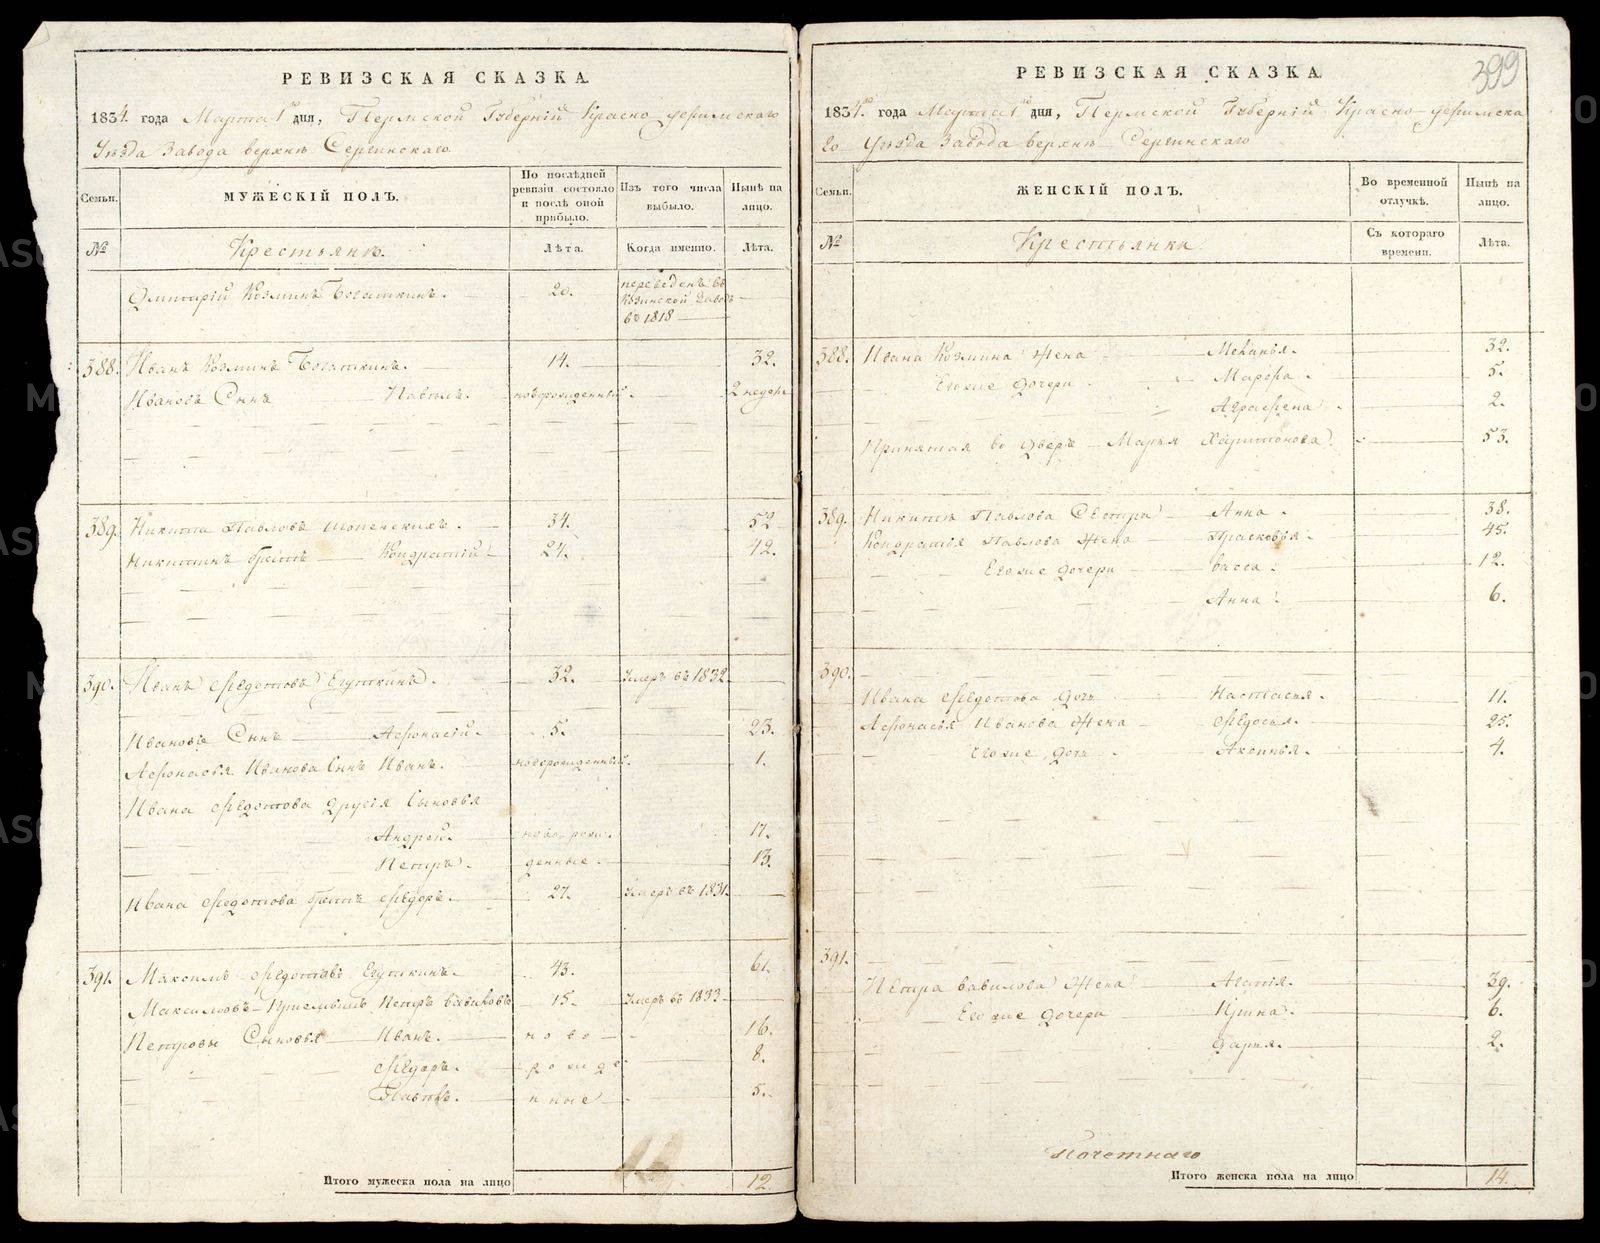 РЕВИЗСКАЯ СКАЗКА.
1834. года Марта 1го дня, Пермской Губерніи Красно уфимскаго
Уѣзда Завода верхнѣ Сергинскаго
Семьи.
МУЖЕСКІЙ ПОЛЪ.
По послѣдней ревизіи состояло и послѣ оной прибыло.
Изъ того числа выбыло.
Нынѣ на лицо.
№
Крестьянѣ.
Лѣта.
Когда именно.
Лѣта.
Дмитрій Козминъ Богаткинъ. 20. переведенъ въ
Завод
въ 1818
388. Иванъ Козминъ Богаткинъ. 14. 32.
Ивановъ Сынъ Павелъ. новорожденный. 2 недели
389. Никита Павловъ 34. 52
Никитинъ братъ Кондратій 24. 42.
390. Иванъ Федотовъ Егуткинъ. 32. Умеръ въ 1832.
Ивановъ Сынъ Афонасій. 5. 23.
Афонасья Иванова Сынъ Иванъ. новорожденный. 1.
Ивана Федотова другія Сыновья
Андрей. ново рож. 17.
Петръ. денные. 13.
Ивана Федотова братъ Федоръ. 27. Умеръ въ 1831.
391. Максимъ Федотовъ Егуткинъ. 43. 61.
Максимовъ Приемышъ Петръ Вавиловъ 15. Умеръ въ 1833
Петровы Сыновья Иванъ. ново 16.
Федоръ. рожде 8.
Павелъ. нные 5.
Итого мужеска пола на лицо 12.
399
РЕВИЗСКАЯ СКАЗКА
1834.го года Марта 1го дня, Пермской Губерніи Красно уфимска
го Уѣзда Завода верхнѣ Сергинскаго
Семьи.
ЖЕНСКІЙ ПОЛЪ.
Во временной отлучкѣ.
Нынѣ на лицо.
№
Крестьянки
Съ котораго времени.
Лѣта.
388. Ивана Козмина Жена Меланья. 32.
Егожие дочери Марфа. 5.
Аграфена 2.
Принятая во дворъ Марья Харитонова. 53.
389. Никиты Павлова Сестра Анна 38.
Кондратья Павлова Жена Прасковья. 45.
Егожие дочери васса. 12.
Анна 6.
390.
Ивана Федотова дочь Настасья. 11.
Афонасья Иванова Жена Федосья. 25.
Егожие дочь Аксинья. 4.
391.
Петра вавилова Жена Агафія. 39.
Егожие дочери Ирина. 6.
Дарья. 2.
Итого женска пола на лицо 14.